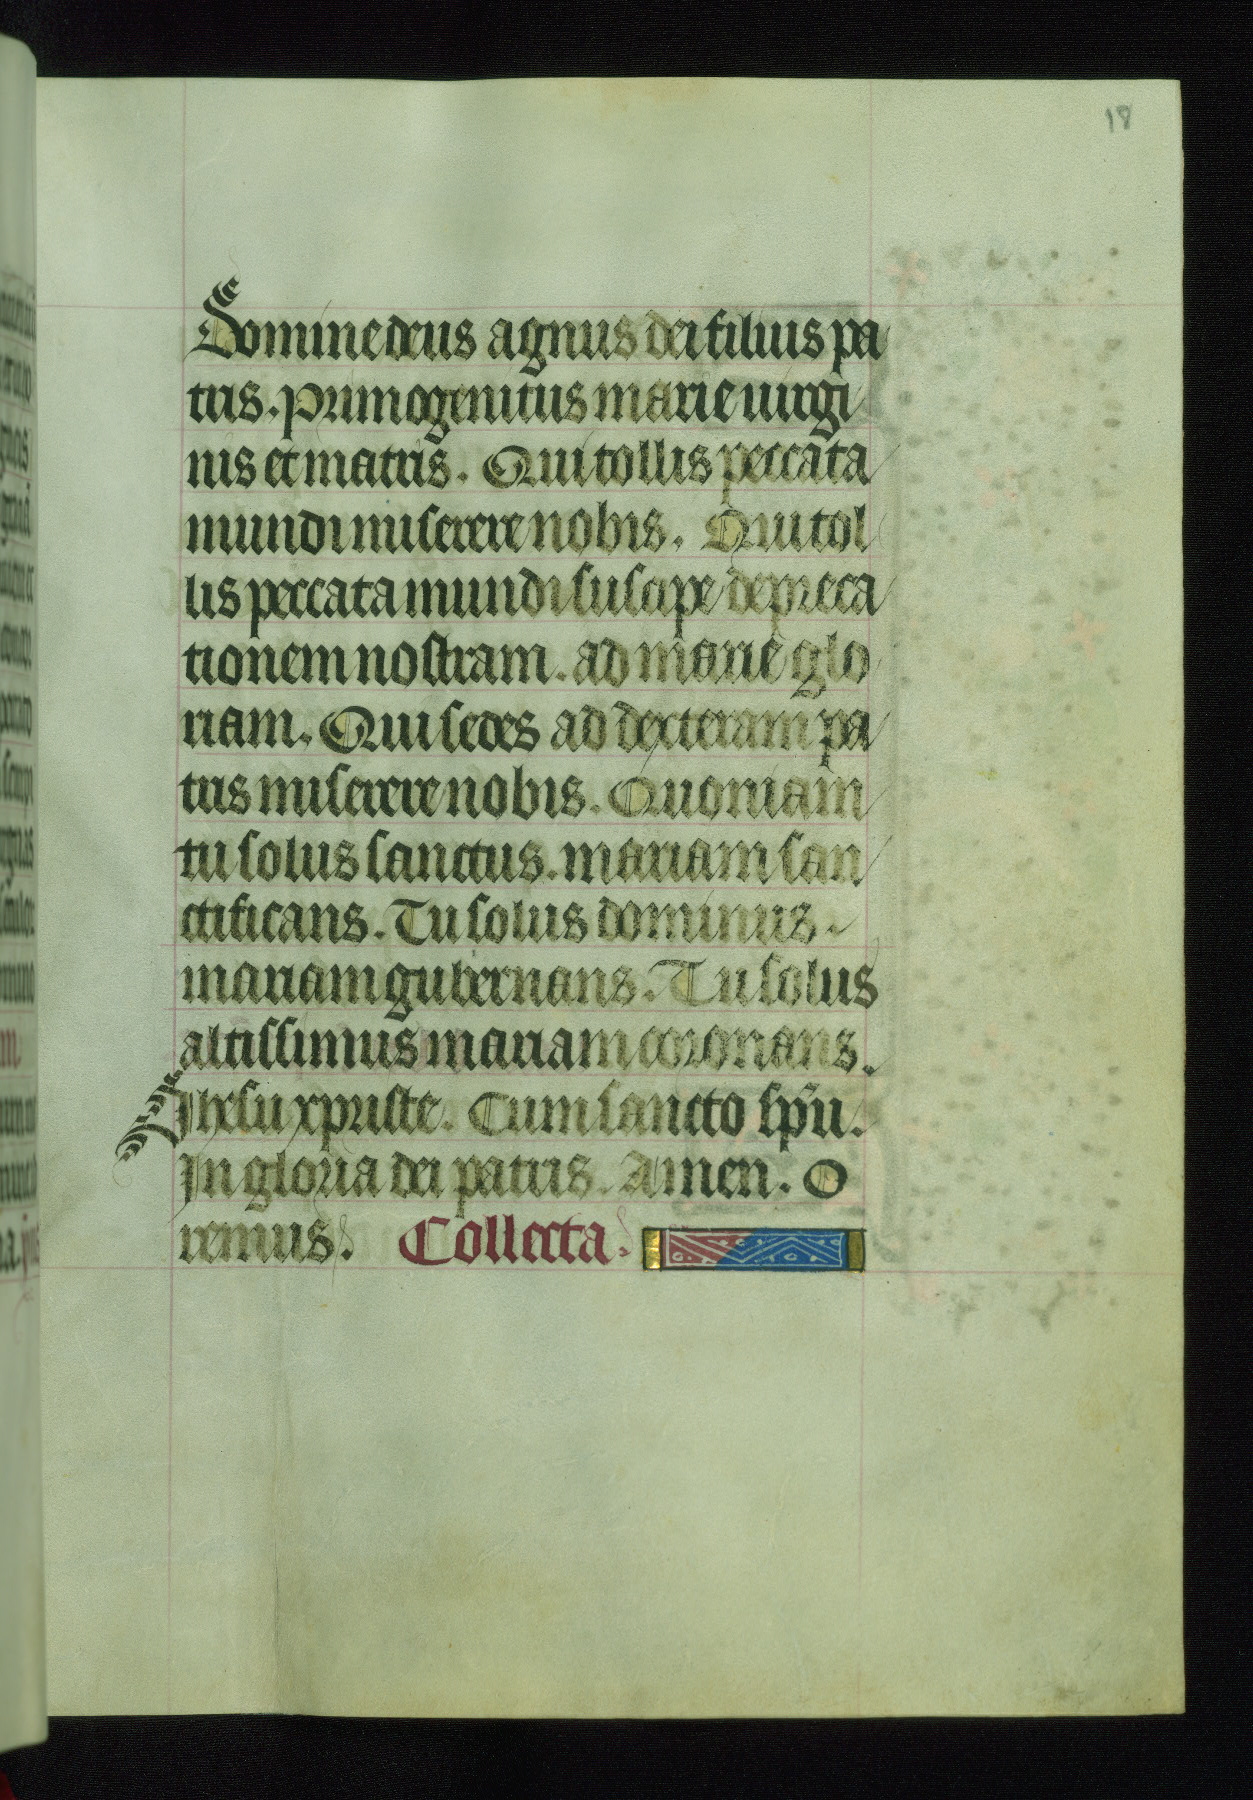 18
Domine deus agnus dei filius pa
tris. Primogenitus marie uirgi
nis et matris. Qui tollis peccata
mundi miserere nobis. Qui tol
lis peccata mundi suscipe depreca
tionem nostram. ad marie glo
riam. Qui sedes ad dexteram pa
tris miserere nobis. Quoniam
tu solus sanctus. mariam san
ctificans. Tu solus dominus.
mariam gubernans. Tu solus
altissimus mariam coronans.
Jhesu xpriste. Cum sancto spū.
In gloria dei patris. Amen. O
remus. Collecta.